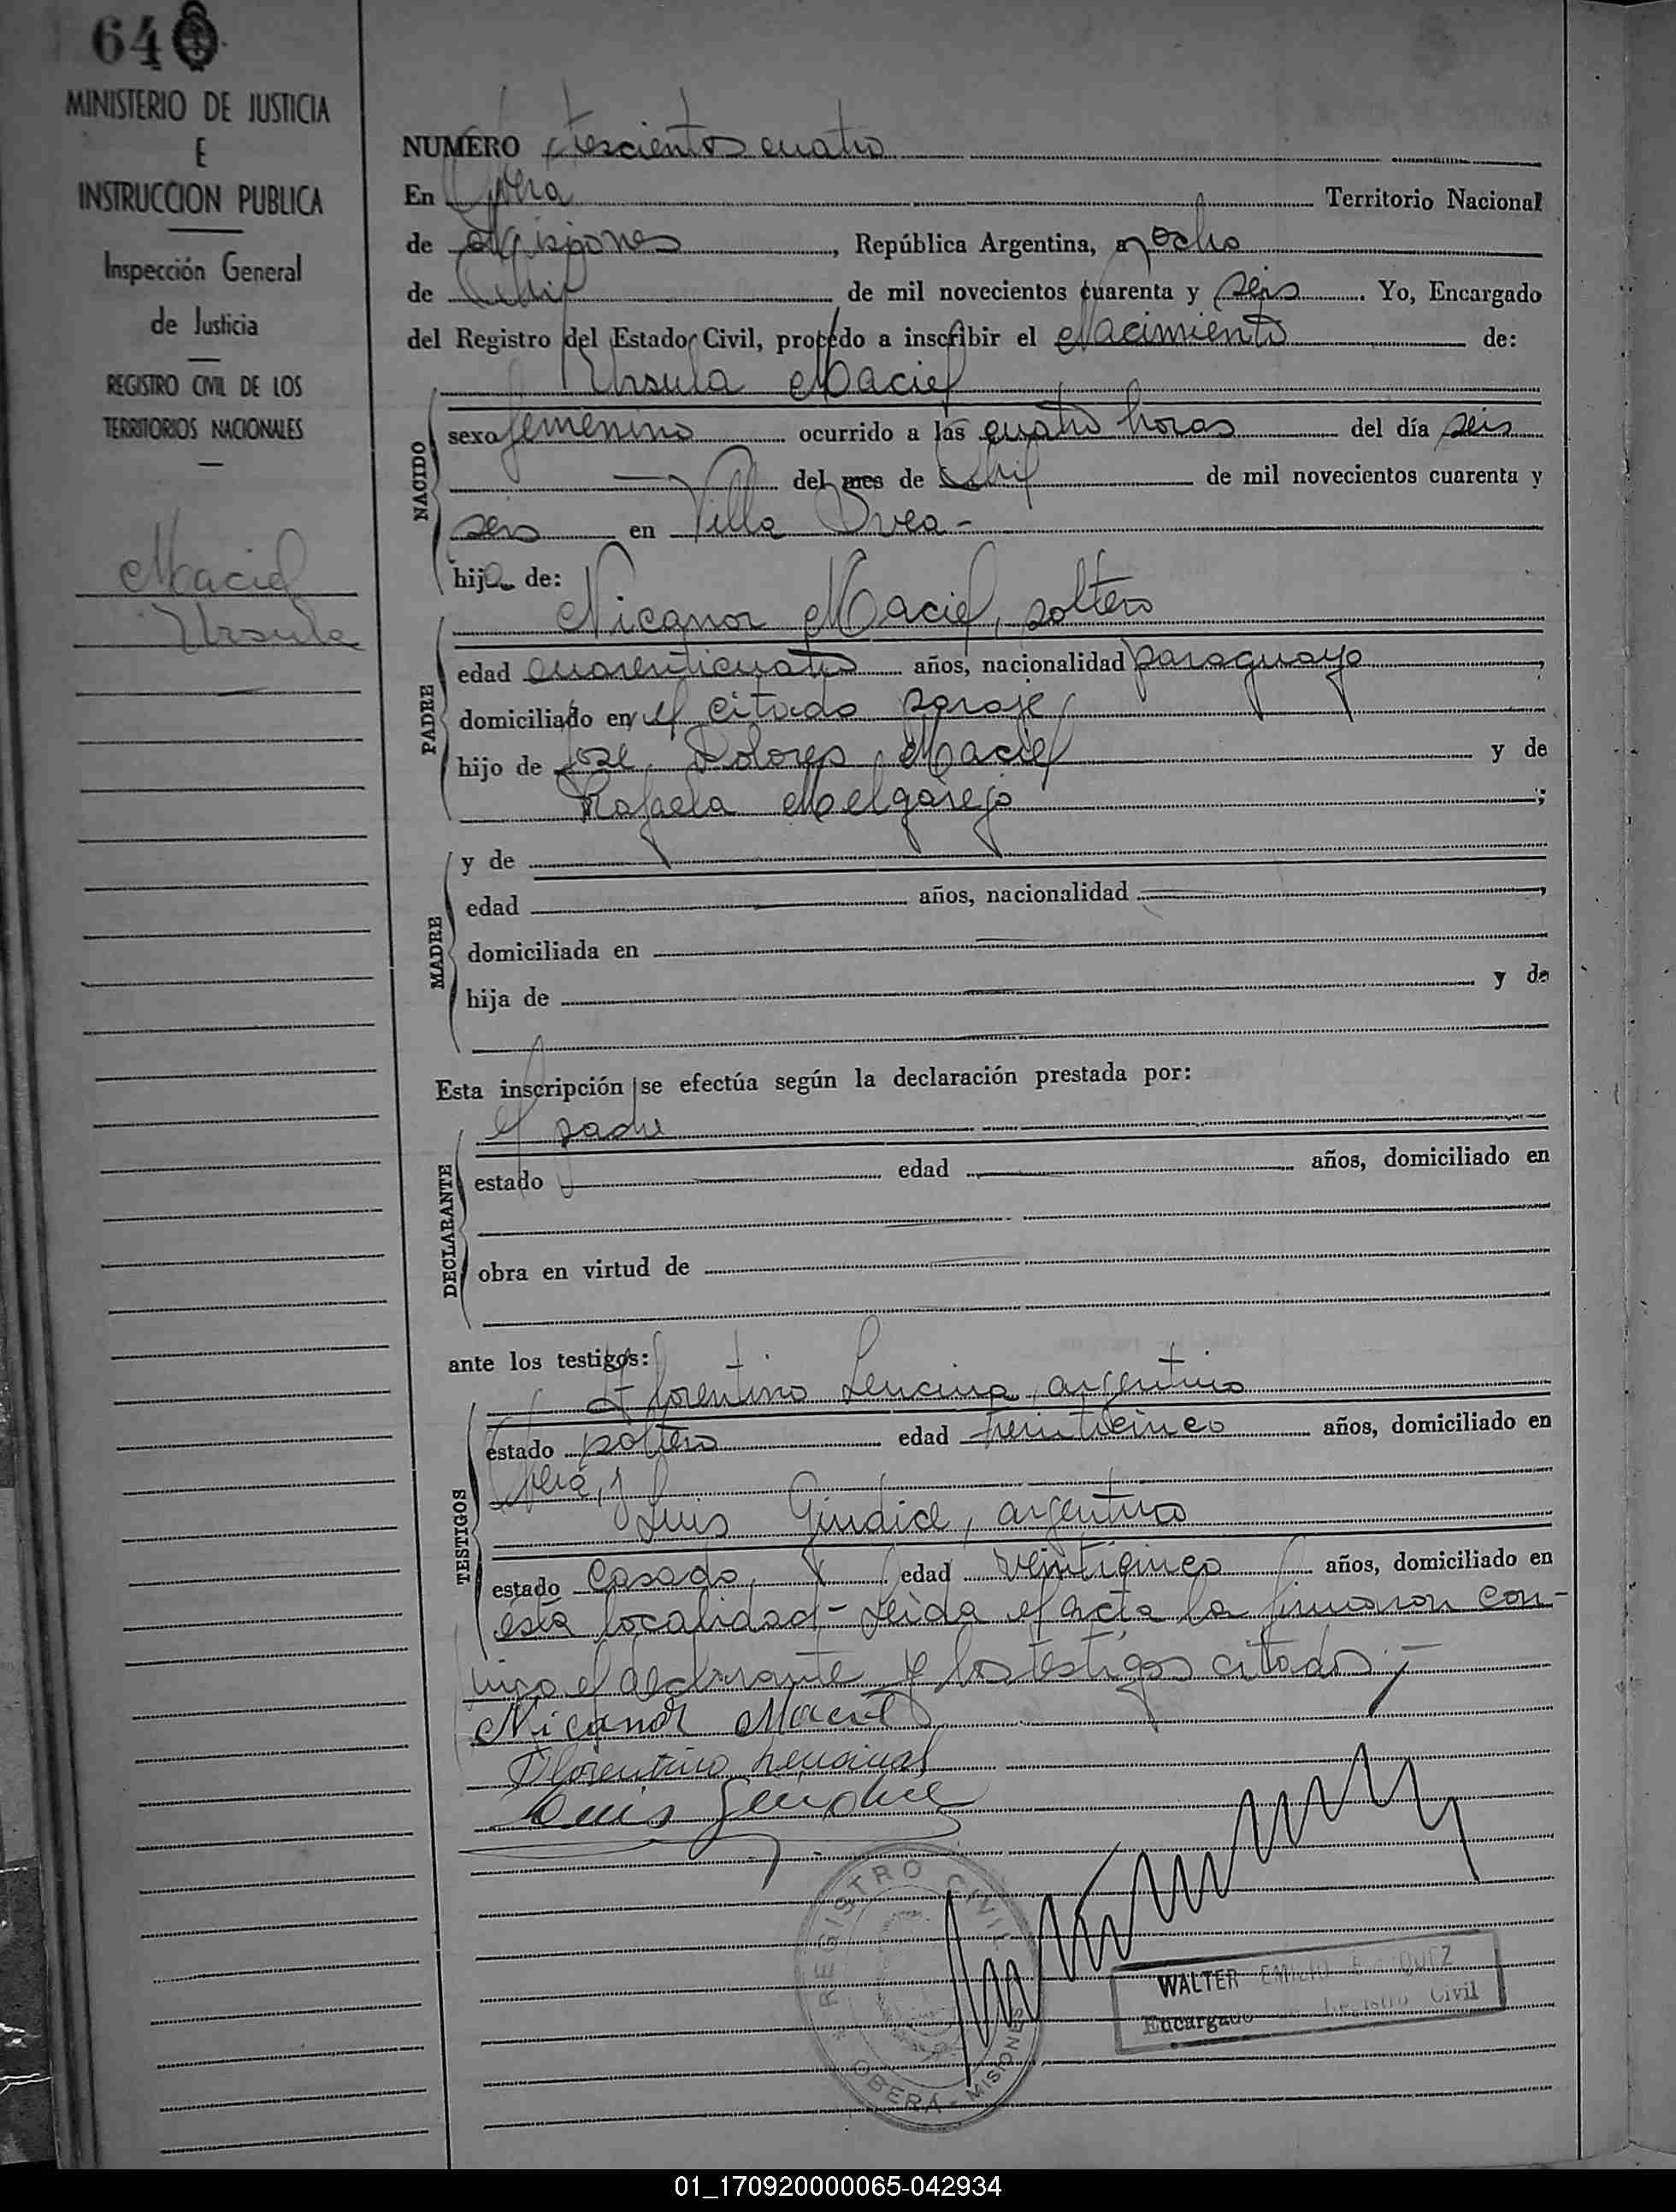 64
MINISTERIO DE JUSTICIA
E
INSTRUCCION PUBLICA
Inspección General
de Justicia
REGISTRO CIVIL DE LOS
TERRITORIOS NACIONALES
Maciel
Ursula
NUMERO trescientos cuatro
En Oberá Territorio Nacional
de Misiones, República Argentina, a ocho
de Abril de mil novecientos cuarenta y seis. Yo, Encargado
del Registro del Estado Civil, procedo a inscribir el Nacimiento de:
Ursula Maciel
NACIDO
sexo femenino ocurrido a las cuatro horas del día seis
del mes de Abril de mil novecientos cuarenta y
seis en Villa
hija de:
Nicanor Maciel, soltero
PADRE
edad cuarenticuatro años, nacionalidad paraguayo,
domiciliado en el citado paraje
hijo de José Dolores Maciel y de
Rafaela Melgarejo;
MADRE
y de
edad años, nacionalidad,
domiciliada en
hija de y de
Esta inscripción se efectúa según la declaración prestada por:
el padre
DECLARANTE
estado edad años, domiciliado en
obra en virtud de
ante los testigos:
Florentino Lencina, argentino
TESTIGOS
estado soltero edad treinticinco años, domiciliado en
Oberá, y
Luis Giudice, argentino
estado casado edad veinticinco años, domiciliado en
esta localidad - Leida el acta la firmaron con-
migo el declarante y los testigos citados,-
Nicanor Maciel
Florentino
Luis Giudice
REGISTRO CIVIL
OBERA - MISIONES
WALTER EMILIO
Encargado de Registro Civil
01_170920000065-042934